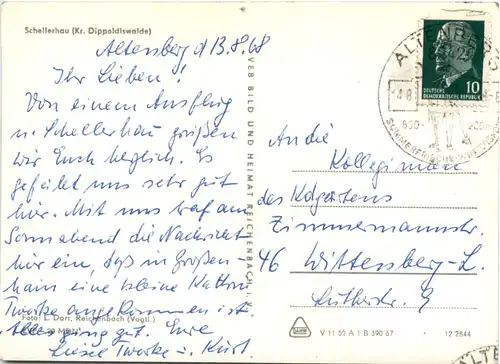 Schellerhau (Kr. Dippoldiswalde)
Altenberg d 13.8.68
Ihr Lieben!
Von einem Ausflug
n. Schellerhau grüßen
wir Euch herzlich. Es
gefällt uns sehr gut
hier. Mit uns traf am
Sonnabend die Nachricht
hier ein, daß in Großen-
hain eine kleine
Twarke angekommen ist
Alles ging gut. Eure
Liesel Twarke u. Kurt
Foto: L. Dorr, Reichenbach (Vogtl.)
VEB BILD UND HEIMAT REICHENBACH
ALTENBERG
10
DEUTSCHE
DEMOKRATISCHE REPUBLIK
An die
Kolleginnen
des Kdgartens
Zimmermannstr.
46 Wittenberg-L.
Lutherstr.
V 11 50 A 1 B 390 67
12 2844